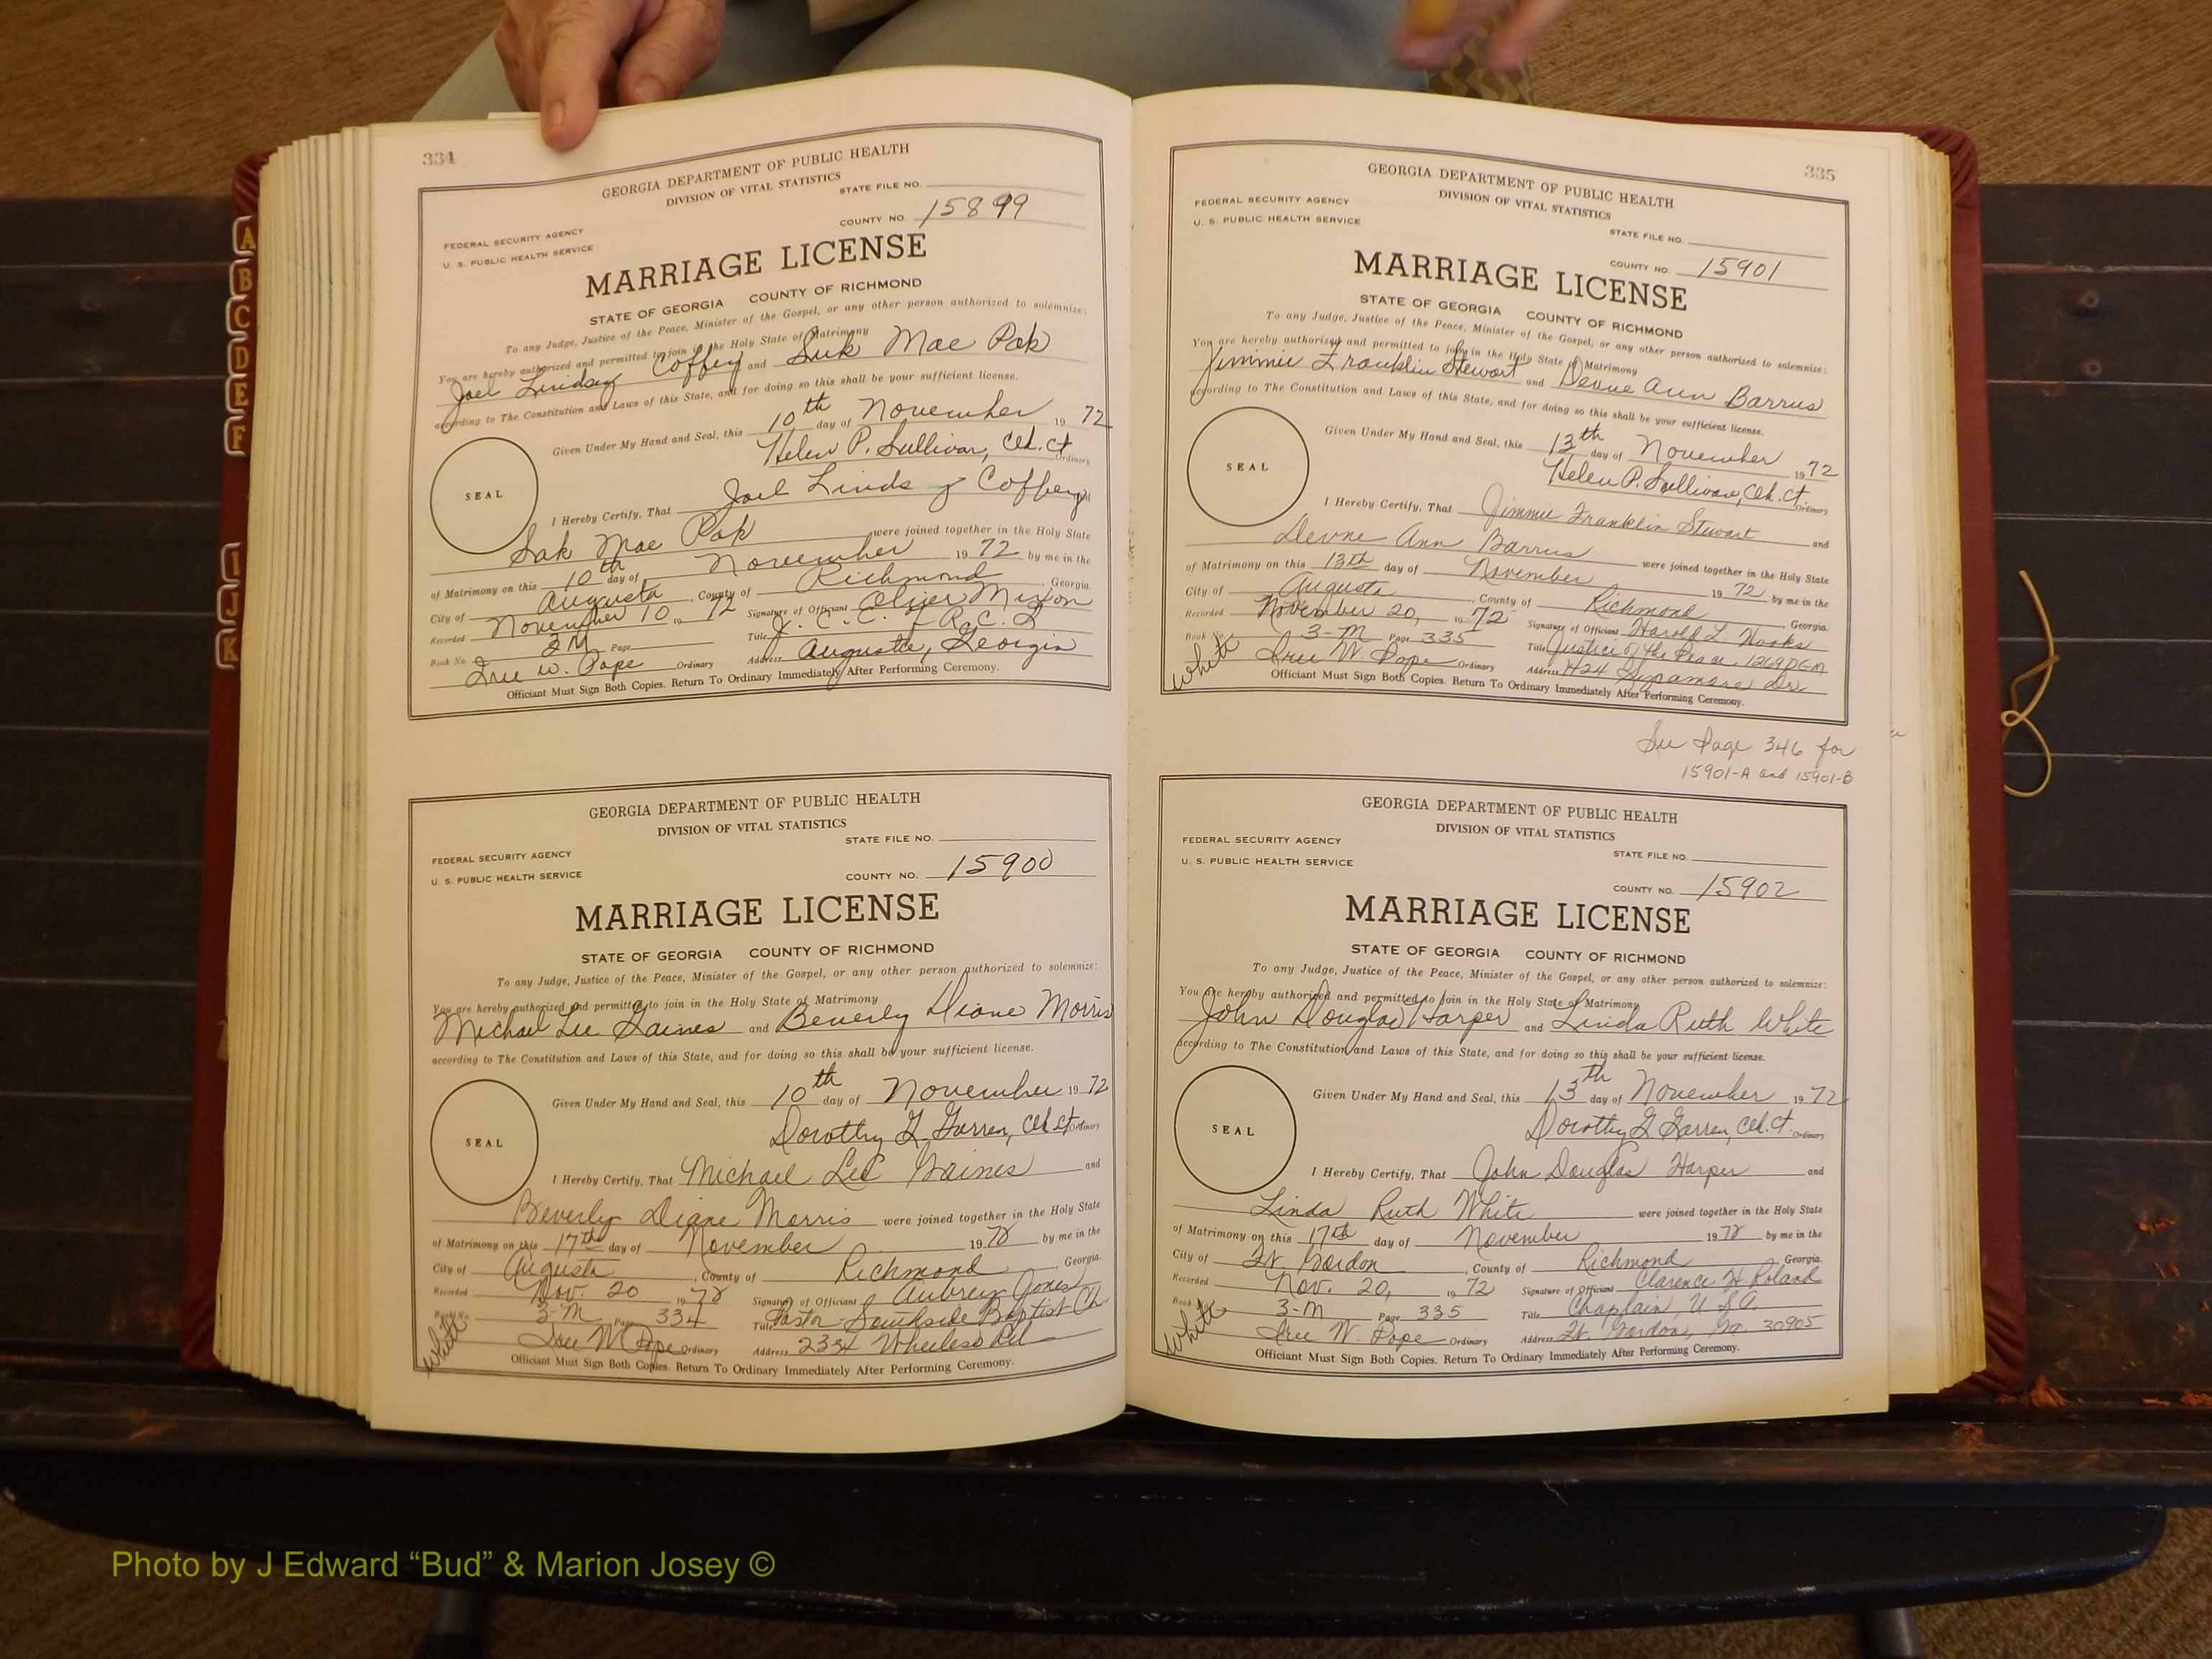 334
GEORGIA DEPARTMENT OF PUBLIC HEALTH
DIVISION OF VITAL STATISTICS
STATE FILE NO.
COUNTY NO. 15899
FEDERAL SECURITY AGENCY
U. S. PUBLIC HEALTH SERVICE
MARRIAGE LICENSE
STATE OF GEORGIA COUNTY OF RICHMOND
To any Judge, Justice of the Peace, Minister of the Gospel, or any other person authorized to solemnize:
You are hereby authorized and permitted to join in the Holy State of Matrimony
Joel Lindsey Coffey and Suk Mae Pak
according to The Constitution and Laws of this State, and for doing so this shall be your sufficient license.
Given Under My Hand and Seal, this 10th day of November 19 72
Helen P. Sullivan, Clk. Ct. Ordinary
SEAL
I Hereby Certify, That Joel Lindsey Coffey and
Sak Mae Pak were joined together in the Holy State
of Matrimony on this 10th day of November 19 72 by me in the
City of Augusta, County of Richmond, Georgia.
Recorded November 10, 19 72 Signature of Officiant Mixon
Book No. 3M Page Title
W. Pope Ordinary Address Augusta, Georgia
Officiant Must Sign Both Copies. Return To Ordinary Immediately After Performing Ceremony.
GEORGIA DEPARTMENT OF PUBLIC HEALTH
DIVISION OF VITAL STATISTICS
STATE FILE NO.
FEDERAL SECURITY AGENCY
U. S. PUBLIC HEALTH SERVICE
COUNTY NO. 15900
MARRIAGE LICENSE
STATE OF GEORGIA COUNTY OF RICHMOND
To any Judge, Justice of the Peace, Minister of the Gospel, or any other person authorized to solemnize:
You are hereby authorized and permitted to join in the Holy State of Matrimony
Michael Lee Gaines and Beverly Diane Morris
according to The Constitution and Laws of this State, and for doing so this shall be your sufficient license.
Given Under My Hand and Seal, this 10th day of November 19 72
Dorothy G. Garren, Clk. Ct. Ordinary
SEAL
I Hereby Certify, That Michael Lee Gaines and
Beverly Diane Morris were joined together in the Holy State
of Matrimony on this 17th day of November 19 72 by me in the
City of Augusta, County of Richmond, Georgia.
Recorded Nov. 20 19 72 Signature of Officiant Aubrey Jones
Book No. 3-M Page 334 Title Pastor Southside Baptist Ch
White
W. Pope Ordinary Address 2334 Wheeless Rd
Officiant Must Sign Both Copies. Return To Ordinary Immediately After Performing Ceremony.
335
GEORGIA DEPARTMENT OF PUBLIC HEALTH
DIVISION OF VITAL STATISTICS
FEDERAL SECURITY AGENCY
U. S. PUBLIC HEALTH SERVICE
STATE FILE NO.
COUNTY NO. 15901
MARRIAGE LICENSE
STATE OF GEORGIA COUNTY OF RICHMOND
To any Judge, Justice of the Peace, Minister of the Gospel, or any other person authorized to solemnize:
You are hereby authorized and permitted to join in the Holy State of Matrimony
Jimmie Franklin Stewart and Devne Ann Barrus
according to The Constitution and Laws of this State, and for doing so this shall be your sufficient license.
Given Under My Hand and Seal, this 13th day of November 19 72
Helen P. Sullivan, Clk. Ct. Ordinary
SEAL
I Hereby Certify, That Jimmie Franklin Stewart and
Devne Ann Barrus were joined together in the Holy State
of Matrimony on this 13th day of November 19 72 by me in the
City of Augusta, County of Richmond, Georgia.
Recorded November 20, 19 72 Signature of Officiant Harold L. Hooks
Book No. 3-M Page 335 Title Justice of the Peace, 1269 DGM
White
W. Pope Ordinary Address 424 Sycamore Dr.
Officiant Must Sign Both Copies. Return To Ordinary Immediately After Performing Ceremony.
See Page 346 for
15901-A and 15901-B
GEORGIA DEPARTMENT OF PUBLIC HEALTH
DIVISION OF VITAL STATISTICS
FEDERAL SECURITY AGENCY
U. S. PUBLIC HEALTH SERVICE
STATE FILE NO.
COUNTY NO. 15902
MARRIAGE LICENSE
STATE OF GEORGIA COUNTY OF RICHMOND
To any Judge, Justice of the Peace, Minister of the Gospel, or any other person authorized to solemnize:
You are hereby authorized and permitted to join in the Holy State of Matrimony
John Douglas Harper and Linda Ruth White
according to The Constitution and Laws of this State, and for doing so this shall be your sufficient license.
Given Under My Hand and Seal, this 13th day of November 19 72
Dorothy G. Garren, Clk. Ct. Ordinary
SEAL
I Hereby Certify, That John Douglas Harper and
Linda Ruth White were joined together in the Holy State
of Matrimony on this 17th day of November 19 72 by me in the
City of Ft. Gordon, County of Richmond, Georgia.
Recorded Nov. 20, 19 72 Signature of Officiant Clarence H. Roland
Book 3-M Page 335 Title Chaplain, USA
White
W. Pope Ordinary Address Ft. Gordon, Ga. 30905
Officiant Must Sign Both Copies. Return To Ordinary Immediately After Performing Ceremony.
A
B
C
D
E
F
I
J
K
Photo by J Edward “Bud” & Marion Josey ©